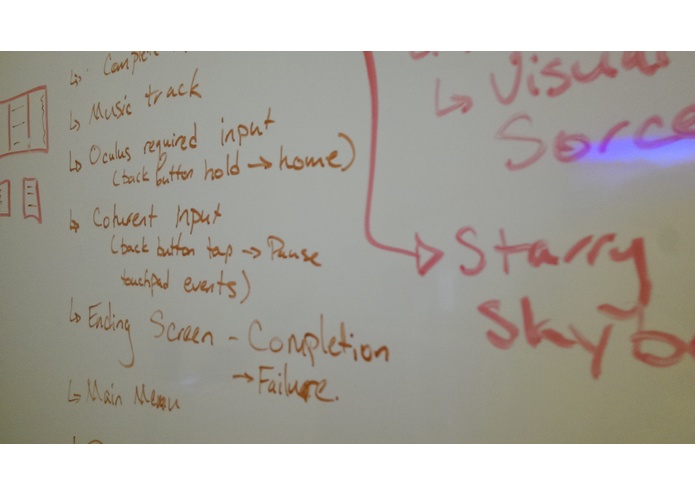 ↳ Music track
↳ Oculus required input
(back button hold → home)
↳ Coherent input
(back button tap → Pause
touchpad events)
↳ Ending Screen - Completion
→ Failure.
↳ Main Menu
↳ Visual
Starry